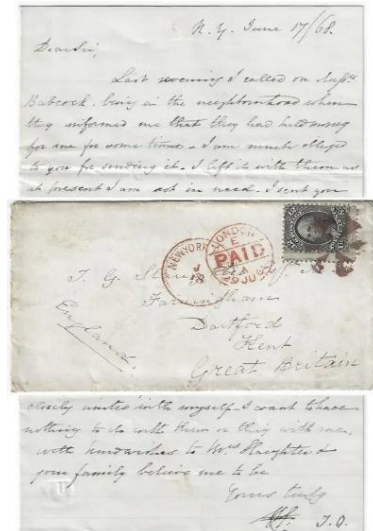 N. Y. June 17/68.
Dear Sir,
Last evening I called on
Babcock. being in the neighborhood when
they informed me that they had held money
for me for some time. I am much obliged
to you for sending it. I left it with them as
at present I am not in need. I sent you
NEW YORK
LONDON
E
PAID
29 JU 68
T. G.
Farningham
Dartford
Kent
England
Great Britain
closely united with myself. I want to have
nothing to do with them or they with me.
with kind wishes to Mrs &
your family believe me to be
Yours truly